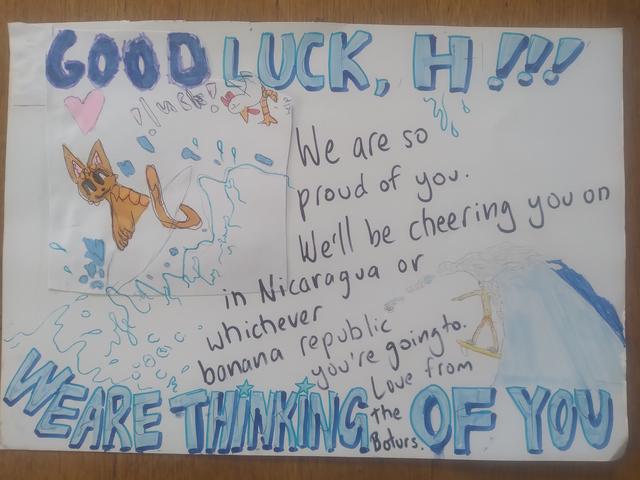 GOOD LUCK, H!!!
Pluck!
We are so
proud of you.
We'll be cheering you on
in Nicaragua or
whichever
banana republic
you're going to.
Love from
the
Boturs.
WE ARE THINKING OF YOU